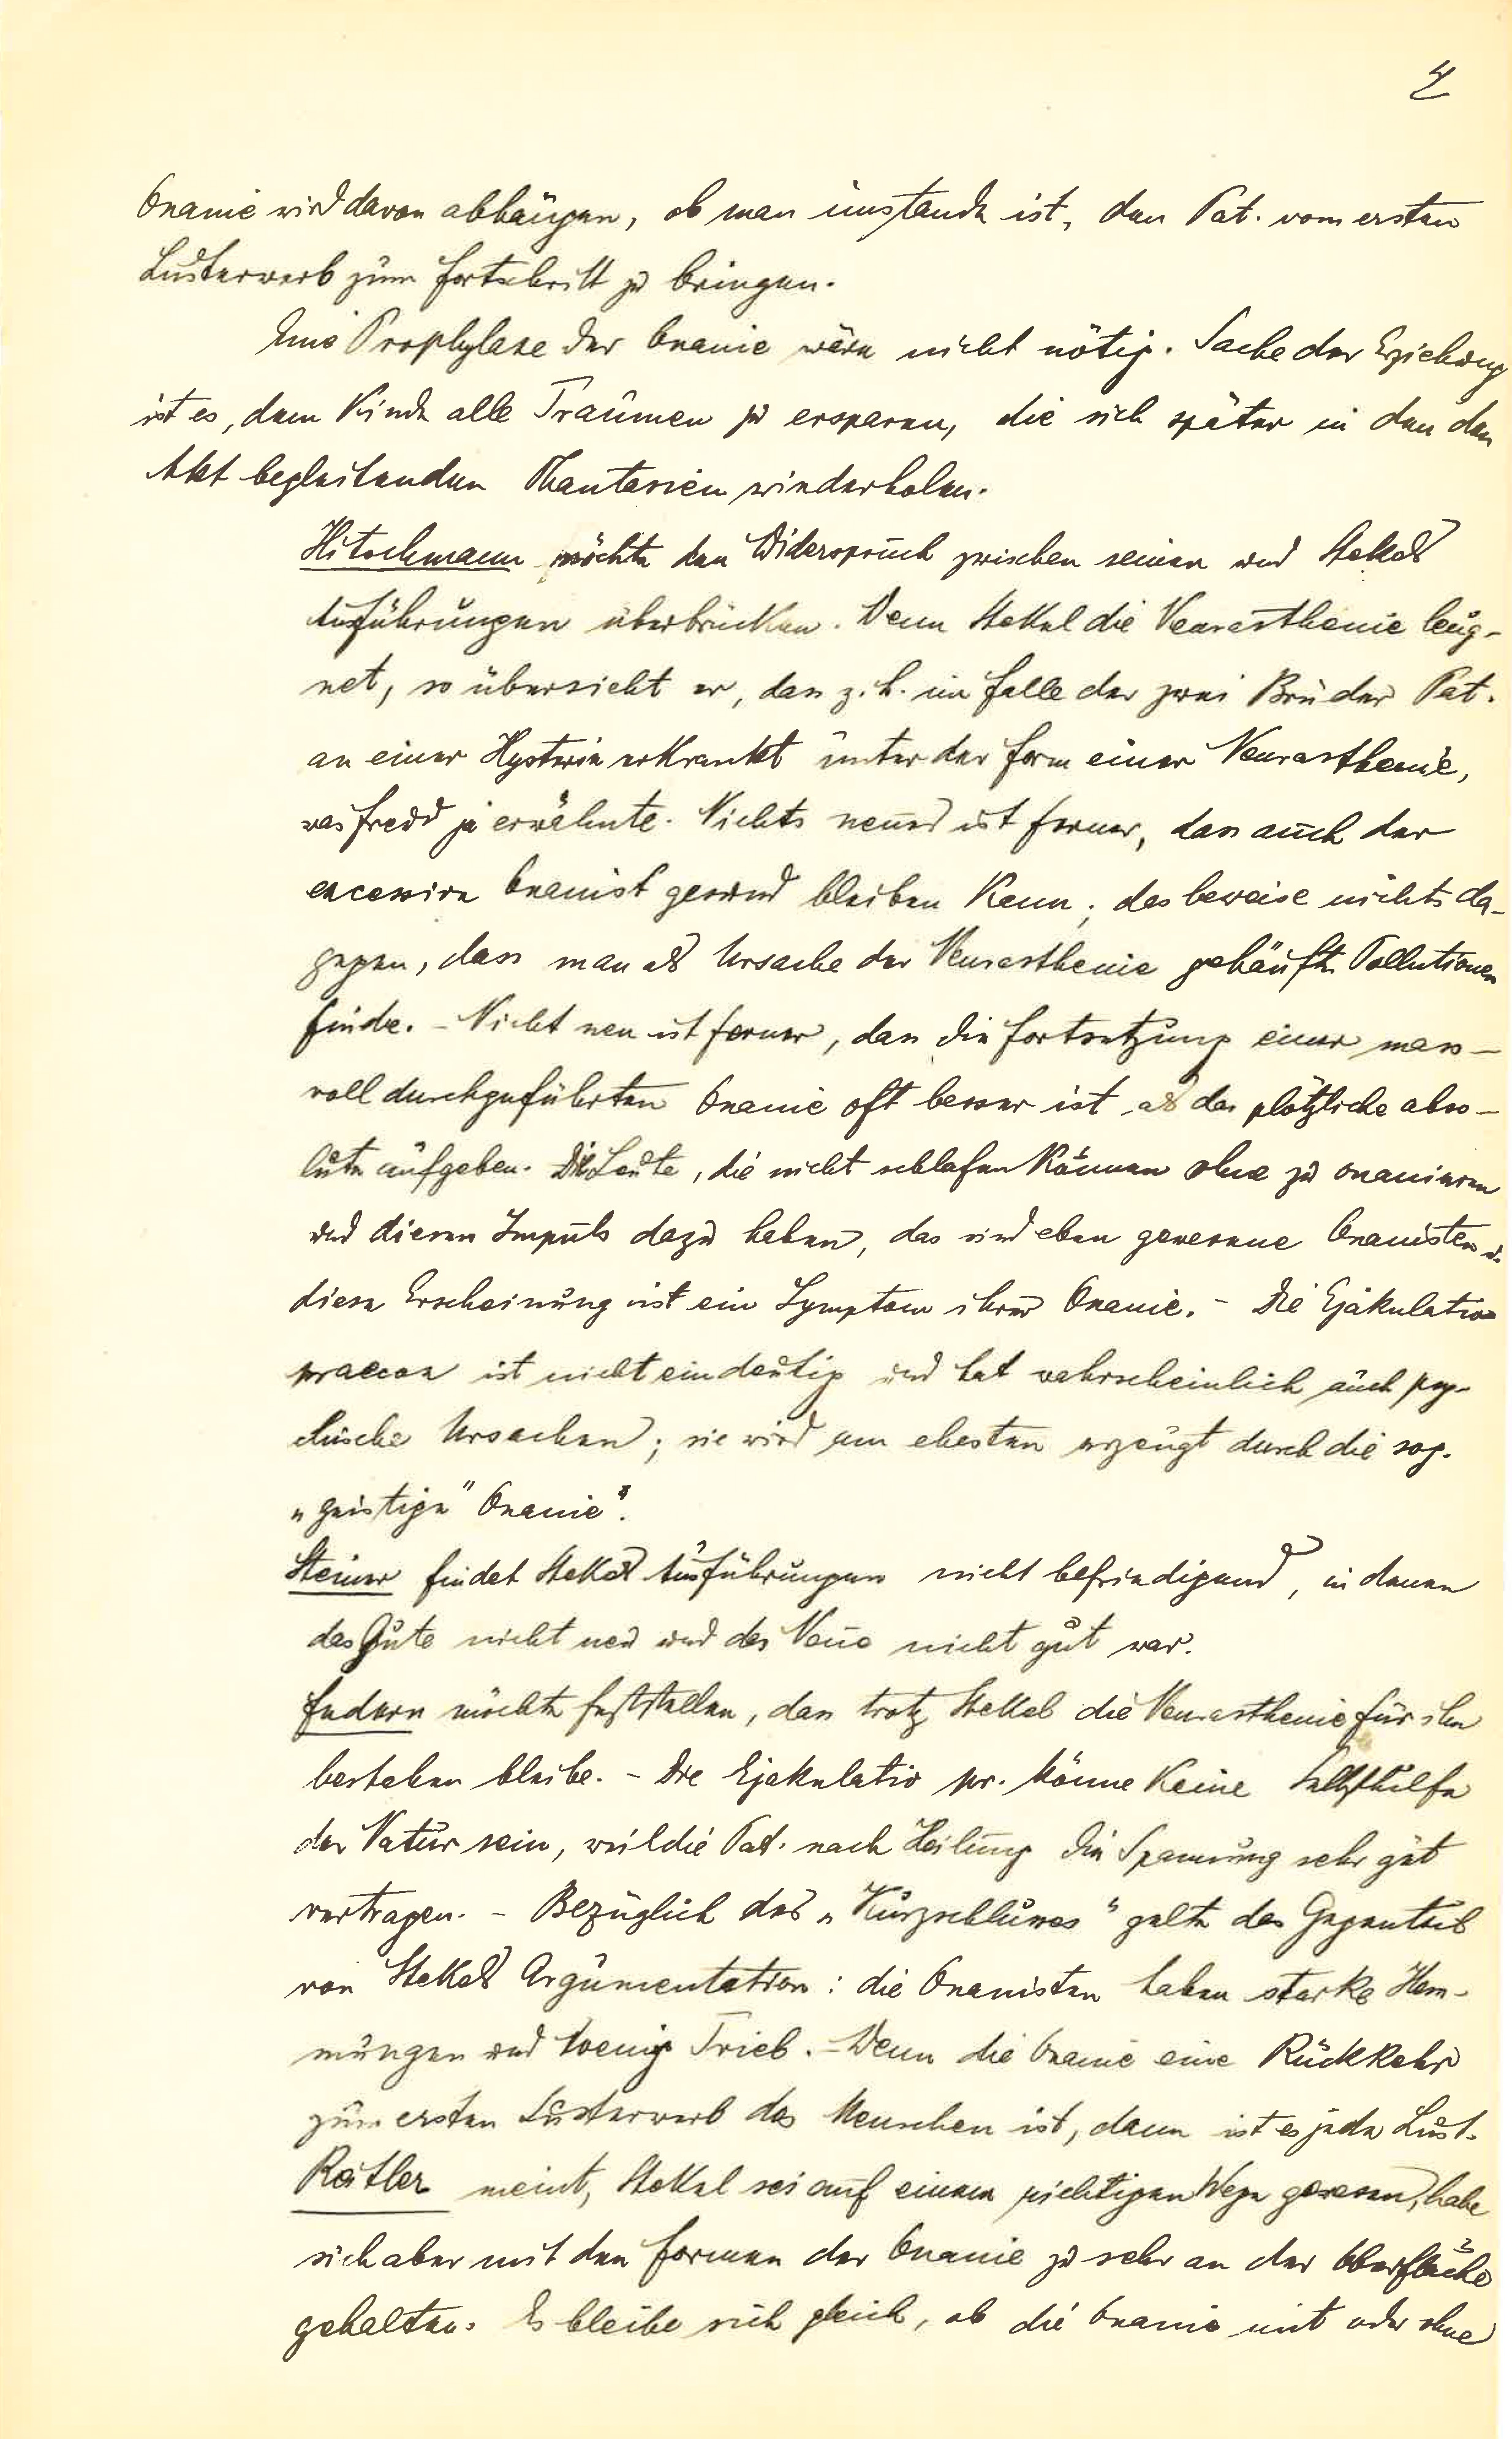 4
Onanie wird davon abhängen, ob man imstande ist, den Pat. vom ersten
Lusterwerb zum Fortschritt zu bringen.
Eine Prophylaxe der Onanie wäre nicht nötig. Sache der Erziehung
ist es, dem Kinde alle Traumen zu ersparen, die sich später in den den
Akt begleitenden Phantasien wiederholen.
Hitschmann möchte den Widerspruch zwischen seinen und Stekels
Ausführungen überbrücken. Wenn Stekel die Neurasthenie leug-
net, so übersieht er, dass z. b. im Falle der zwei Brüder Pat.
an einer Hysterie erkrankt unter der Form einer Neurasthenie,
was Freud ja erwähnte. Nichts neues ist ferner, dass auch der
excessive Onanist gesund bleiben kann; das beweise nichts da-
gegen, dass man als Ursache der Neurasthenie gehäufte Pollutionen
finde. - Nicht neu ist ferner, dass die Fortsetzung einer mass-
voll durchgeführten Onanie oft besser ist als das plötzliche abso-
lute aufgeben. Die Leute, die nicht schlafen können ohne zu onanieren
und diesen Impuls dazu haben, das sind eben gewesene Onanisten u.
diese Erscheinung ist ein Symptom ihrer Onanie. - Die Ejakulatio
praecox ist nicht eindeutig und hat wahrscheinlich auch psy-
chische Ursachen; sie wird am ehesten erzeugt durch die sog.
„geistige" Onanie".
Steiner findet Stekels Ausführungen nicht befriedigend, in denen
das Gute nicht neu und das Neue nicht gut war.
Federn möchte feststellen, dass trotz Stekel die Neurasthenie für ihn
bestehen bleibe. - Die Ejakulatio pr. könne keine Selbsthilfe
der Natur sein, weil die Pat. nach Heilung die Spannung sehr gut
vertragen. - Bezüglich des „Kurzschlusses" gelte das Gegenteil
von Stekels Argumentation: die Onanisten haben starke Hem-
mungen und wenig Trieb. - Wenn die Onanie eine Rückkehr
zum ersten Lusterwerb des Menschen ist, dann ist es jede Lust.
Reitler meint, Stekel sei auf einem richtigen Wege gewesen, habe
sich aber mit den Formen der Onanie zu sehr an der Oberfläche
gehalten. Es bleibe sich gleich, ob die Onanie mit oder ohne